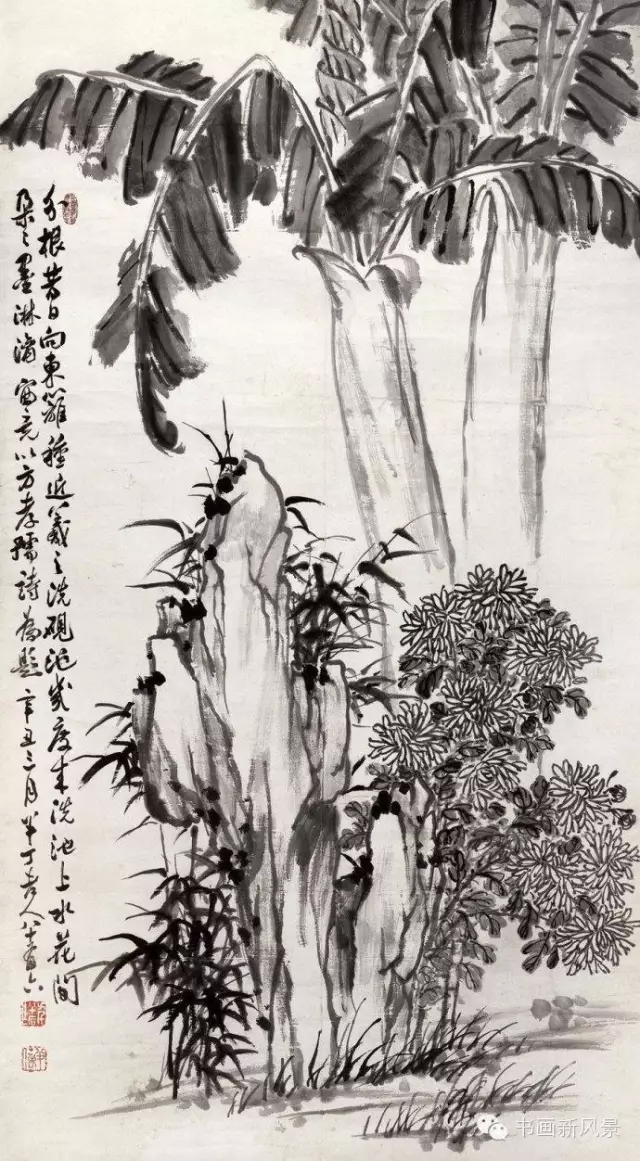 分根昔日向東籬種近羲之洗硯池幾度來洗池上水花間
朶〻墨淋漓 宙亮以方孝孺詩為題 辛丑三月 半丁老人八十有六
书画新风景